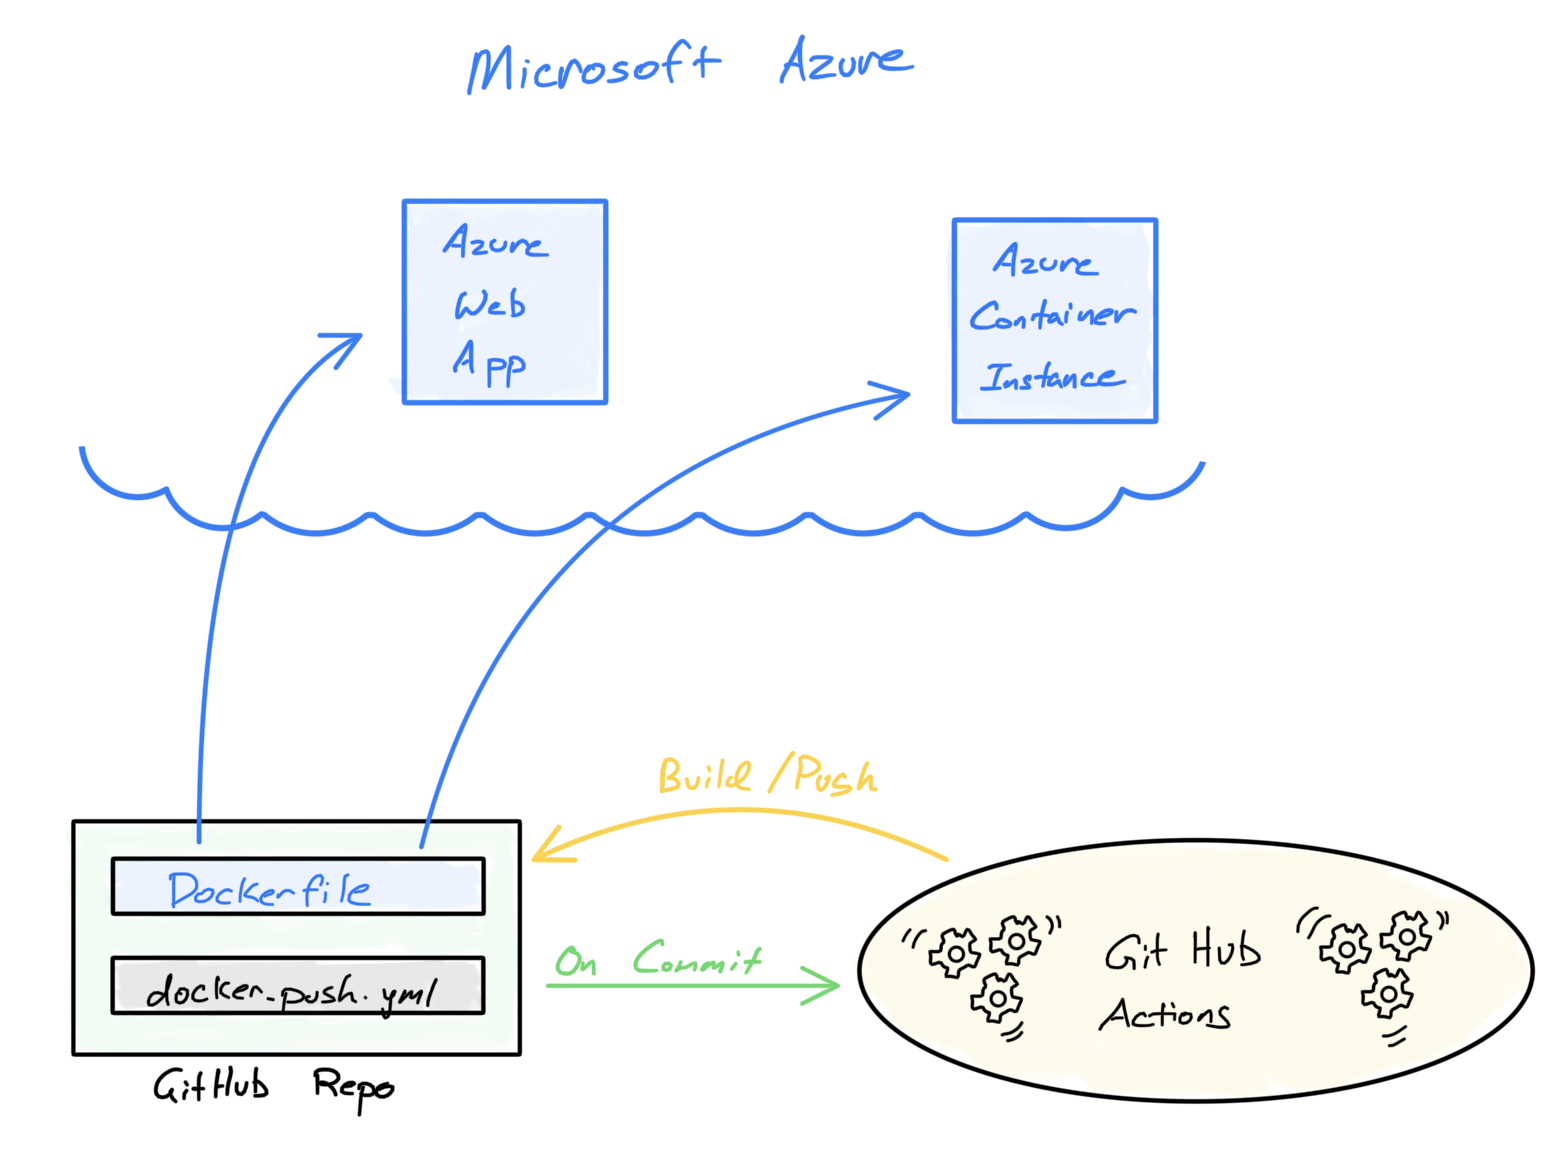 Microsoft Azure
Azure
Web
App
Azure
Container
Instance
Build/Push
Dockerfile
On Commit
docker-push.yml
GitHub Repo
Git Hub
Actions